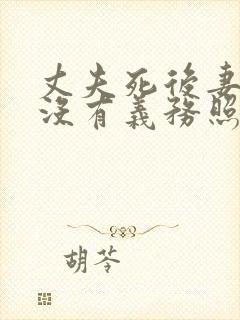 丈夫死後妻
沒有義務照
胡苓